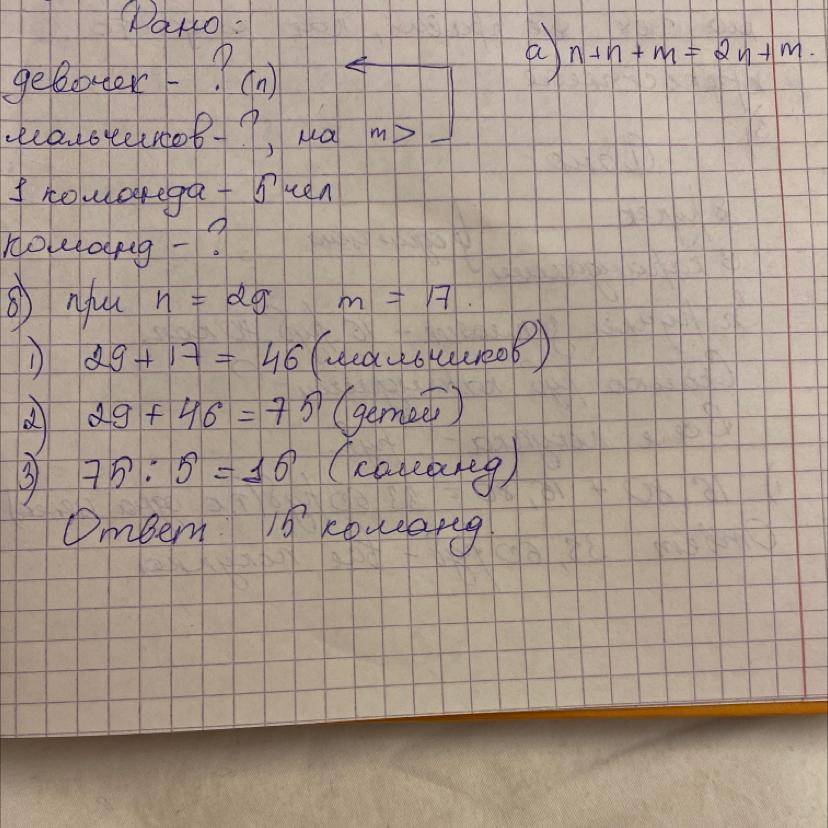 Дано:
а) n+n+m = 2n+m.
девочек - ? (n)
мальчиков - ?, на m >
1 команда - 5 чел
команд - ?
б) при n = 29 m = 17.
1) 29+17 = 46 (мальчиков)
2) 29 + 46 = 75 (детей)
3) 75 : 5 = 15 (команд)
Ответ: 15 команд.